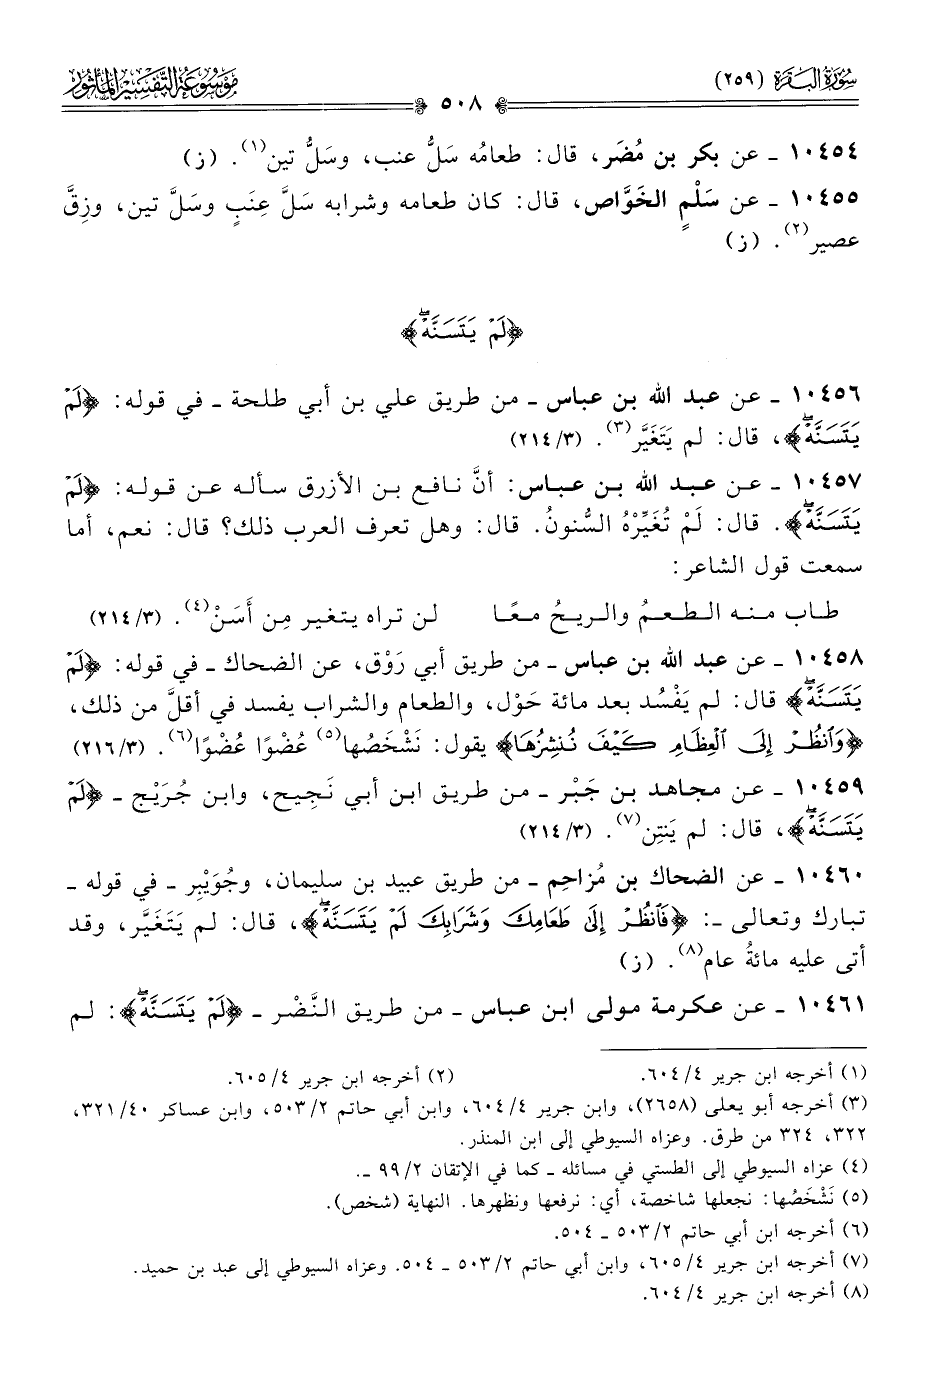 سُورَةُ البَقَرَة (٢٥٩)
٥٠٨
مَوْسُوعَة التَّفْسِير المَأثُور
١٠٤٥٤ - عن بكر بن مُضَر، قال: طعامُه سَلُّ عنب، وسَلُّ تين(١). (ز)
١٠٤٥٥ - عن سَلْمٍ الخَوَّاص، قال: كان طعامه وشرابه سَلَّ عِنَبٍ وسَلَّ تين، وزِقَّ
عصير(٢). (ز)
﴿لَمْ يَتَسَنَّهْۖ﴾
١٠٤٥٦ - عن عبد الله بن عباس - من طريق علي بن أبي طلحة - في قوله: ﴿لَمْ
يَتَسَنَّهْۖ﴾، قال: لم يَتَغَيَّر(٣). (٣/٢١٤)
١٠٤٥٧ - عن عبد الله بن عباس: أنَّ نافع بن الأزرق سأله عن قوله: ﴿لَمْ
يَتَسَنَّهْۖ﴾. قال: لَمْ تُغَيِّرْهُ السُّنونُ. قال: وهل تعرف العرب ذلك؟ قال: نعم، أما
سمعت قول الشاعر:
طاب منه الطعمُ والريحُ معًا لن تراه يتغير مِن أَسَنْ(٤). (٣/٢١٤)
١٠٤٥٨ - عن عبد الله بن عباس - من طريق أبي رَوْق، عن الضحاك - في قوله: ﴿لَمْ
يَتَسَنَّهْۖ﴾ قال: لم يَفْسُد بعد مائة حَوْل، والطعام والشراب يفسد في أقلَّ من ذلك،
﴿وَٱنظُرْ إِلَى ٱلْعِظَامِ كَيْفَ نُنشِزُهَا﴾ يقول: نَشْخَصُها(٥) عُضْوًا عُضْوًا(٦). (٣/٢١٦)
١٠٤٥٩ - عن مجاهد بن جَبْر - من طريق ابن أبي نَجِيح، وابن جُرَيْج - ﴿لَمْ
يَتَسَنَّهْۖ﴾، قال: لم يَنتِن(٧). (٣/٢١٤)
١٠٤٦٠ - عن الضحاك بن مُزاحِم - من طريق عبيد بن سليمان، وجُوَيْبِر - في قوله -
تبارك وتعالى -: ﴿فَٱنظُرْ إِلَىٰ طَعَامِكَ وَشَرَابِكَ لَمْ يَتَسَنَّهْۖ﴾، قال: لم يَتَغَيَّر، وقد
أتى عليه مائةُ عام(٨). (ز)
١٠٤٦١ - عن عكرمة مولى ابن عباس - من طريق النَّضْر - ﴿لَمْ يَتَسَنَّهْۖ﴾: لم
(١) أخرجه ابن جرير ٤/ ٦٠٤. (٢) أخرجه ابن جرير ٤/ ٦٠٥.
(٣) أخرجه أبو يعلى (٢٦٥٨)، وابن جرير ٤/ ٦٠٤، وابن أبي حاتم ٢/ ٥٠٣، وابن عساكر ٤٠/ ٣٢١،
٣٢٢، ٣٢٤ من طرق. وعزاه السيوطي إلى ابن المنذر.
(٤) عزاه السيوطي إلى الطستي في مسائله - كما في الإتقان ٢/ ٩٩ -.
(٥) نَشْخَصُها: نجعلها شاخصة، أي: نرفعها ونظهرها. النهاية (شخص).
(٦) أخرجه ابن أبي حاتم ٢/ ٥٠٣ - ٥٠٤.
(٧) أخرجه ابن جرير ٤/ ٦٠٥، وابن أبي حاتم ٢/ ٥٠٣ - ٥٠٤. وعزاه السيوطي إلى عبد بن حميد.
(٨) أخرجه ابن جرير ٤/ ٦٠٤.